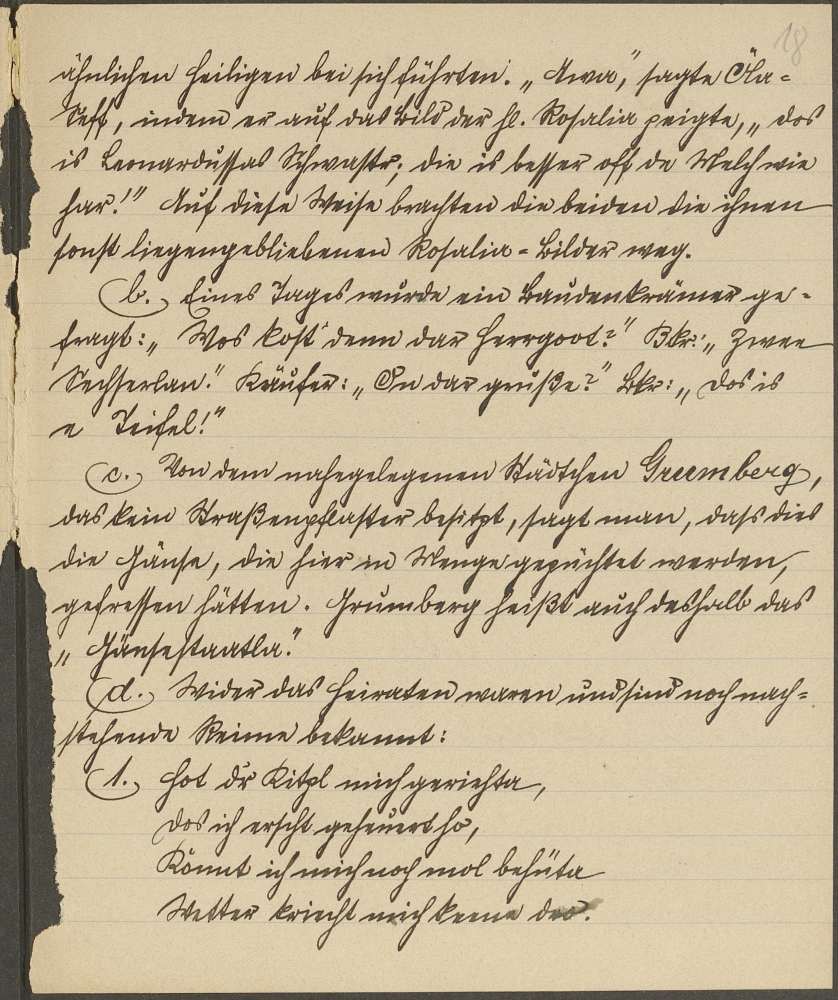 18
ähnlichen Heiligen bei sich führten. „Awa", sagte Öla=
Seff, indem er auf das Bild der hl. Rosalia zeigte, „dos
is Leonardussas Schwastr; die is besser off de Melch wie
har!" Auf diese Weise brachten die beiden die ihnen
sonst liegengebliebenen Rosalia=Bilder weg.
b. Eines Tages wurde ein Baudenkrämer ge=
fragt: „Wos kost' denn dar Herrgoot?" Bkr: „Zwee
Sechserlan." Käufer: „On dar gruße?" Bkr: „Dos is
a Teifel!"
c. Von dem nahegelegenen Städtchen Grumberg,
das kein Straßenpflaster besitzt, sagt man, dass dies
die Gänse, die hier in Menge gezüchtet werden,
gefressen hätten. Grumberg heißt auch deshalb das
„Gänsestaatla."
d. Wider das Heiraten waren und sind noch nach=
stehende Reime bekannt:
1. Hot dr Kitzl mich geriehta,
Dos ich erscht geheuert ho,
Könnt ich mich noch mol behüta
Wetter kriecht mich keene dro.